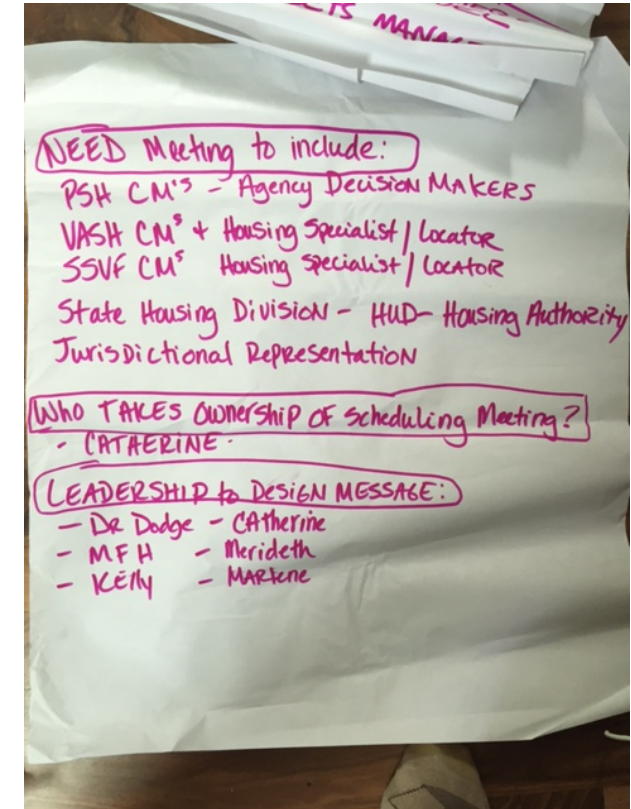 TS MANA
NEED Meeting to include:
PSH CM's - Agency Decision MAKERS
VASH CMs + Housing Specialist / Locator
SSVF CMs Housing Specialist / Locator
State Housing Division - HUD - Housing Authority
Jurisdictional Representation
Who TAKES Ownership OF Scheduling Meeting?
- CATHERINE -
LEADERSHIP to DESIGN MESSAGE:
- DR Dodge - CAtherine
- MFH - Merideth
- Kelly - MARlene